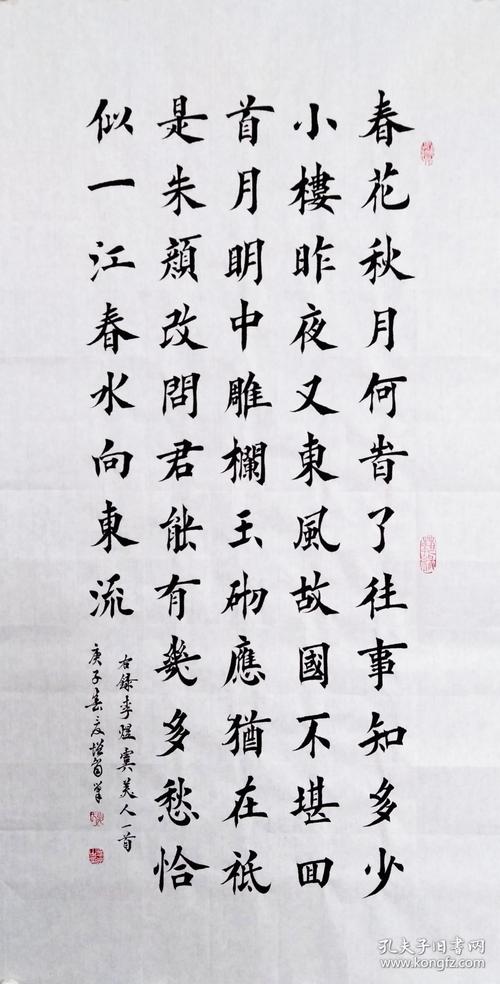 春花秋月何旹了往事知多少
小樓昨夜又東風故國不堪囬
首月明中雕欄玉砌應猶在祗
是朱顔改問君能有幾多愁恰
似一江春水向東流
右錄李煜虞美人一首
庚子春
孔夫子旧书网
www.kongfz.com